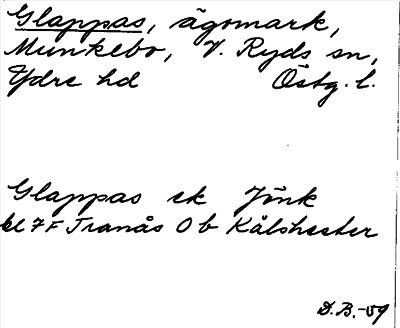 Glappas, ägomark,
Munkebo, V. Ryds sn,
Ydre hd Östg. l.
Glappas ek Jönk
bl 7F Tranås 0b Kålshester
D.B.-59